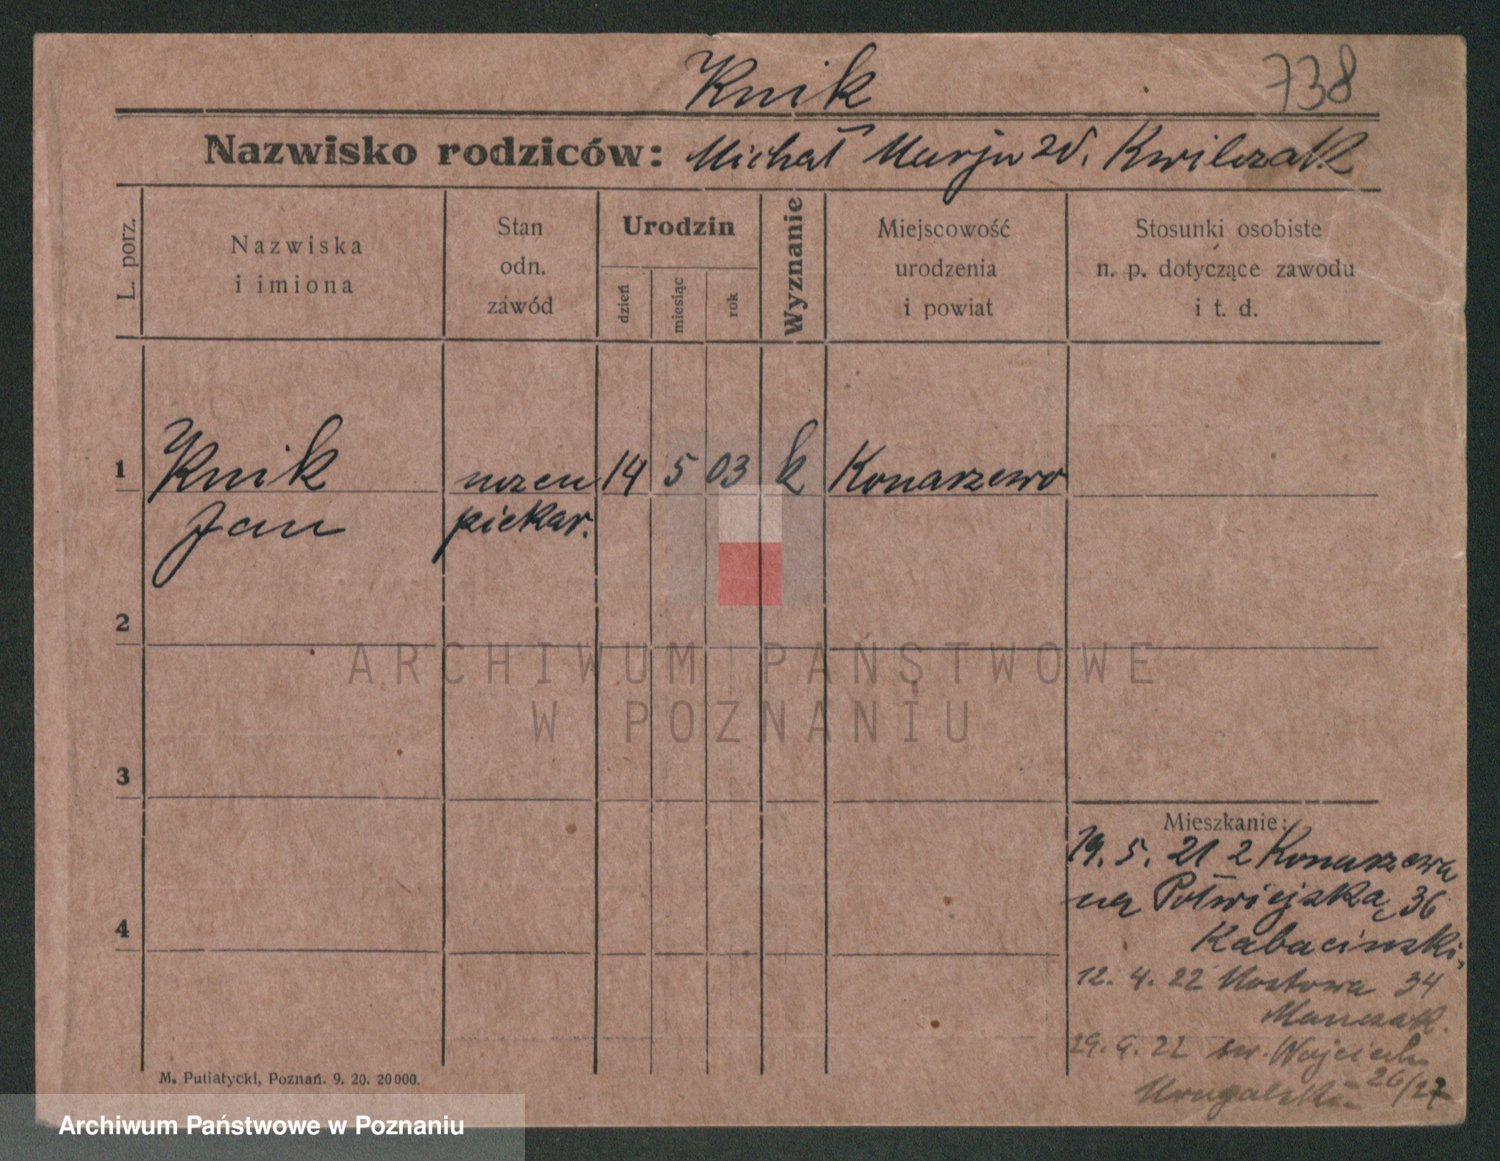 Knik 738
Nazwisko rodziców: Michał Marja zd. Kwilczak
L. porz.
Nazwiska
i imiona
Stan
odn.
zawód
Urodzin
dzień
miesiąc
rok
Wyznanie
Miejscowość
urodzenia
i powiat
Stosunki osobiste
n. p. dotyczące zawodu
i t. d.
1 Knik uczeń 14 5 03 k Konarzewo
Jan piekar.
2
ARCHIWUM PAŃSTWOWE
W POZNANIU
3
Mieszkanie:
19. 5. 21 z Konarzewa
na Półwiejską 36
4
Kabaciński.
12. 4. 22 Mostowa 34
Manczak.
29. 9. 22 św. Wojciech
26/27
M. Putiatycki, Poznań. 9. 20. 20000.
Archiwum Państwowe w Poznaniu